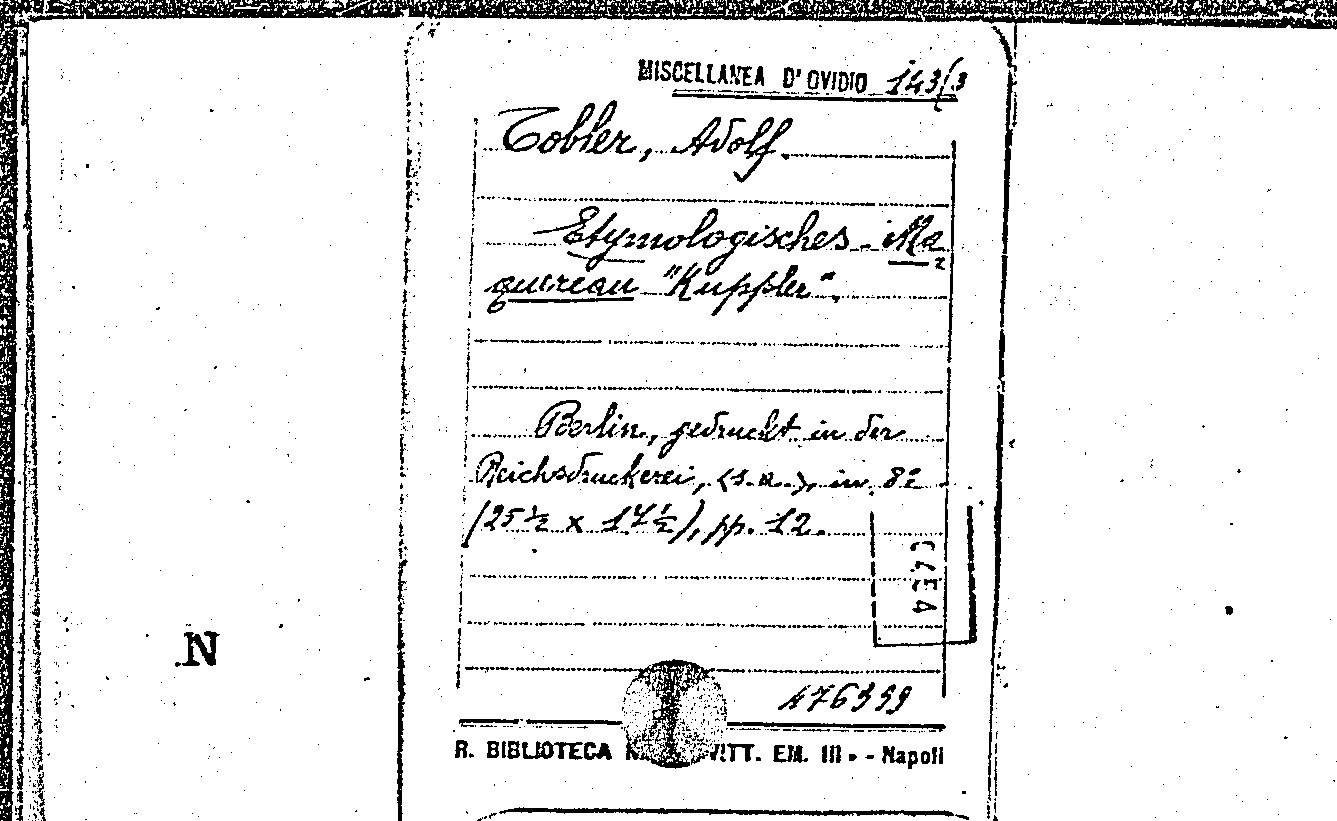 MISCELLANEA D'OVIDIO 143/3
Tobler, Adolf.
Etymologisches - Ma=
quereau "Kuppler".
Berlin, gedruckt in der
Reichsdruckerei, (s.a.), in 8º
(25½ x 17½), pp. 12.
N
476339
R. BIBLIOTECA VITT. EM. III - Napoli